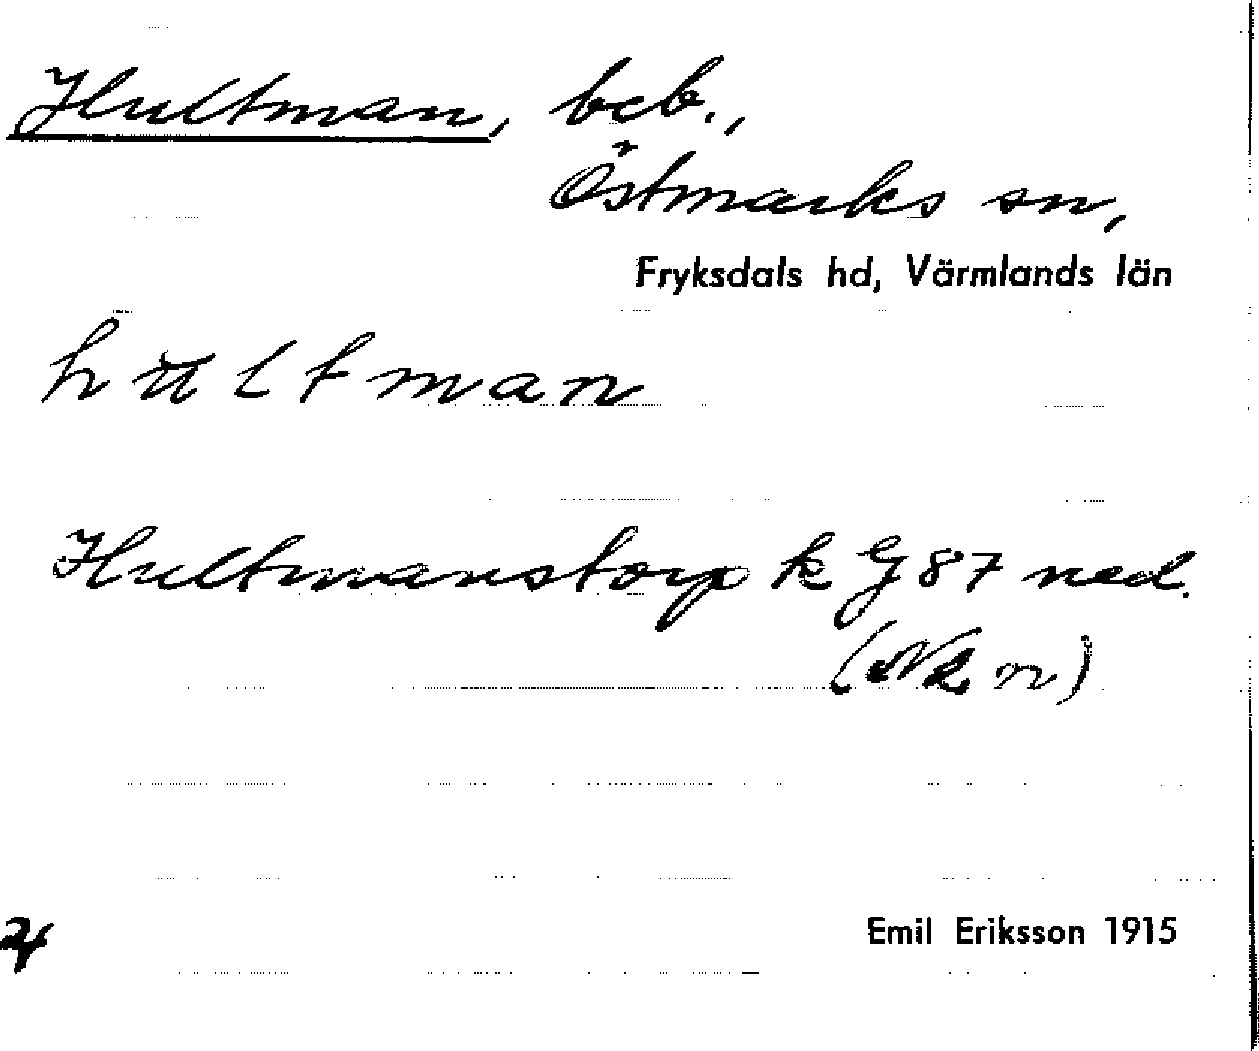 Hultman, beb.,
Östmarks sn,
Fryksdals hd, Värmlands län
hultman
Hultmanstorp k G 87 ned.
Emil Eriksson 1915